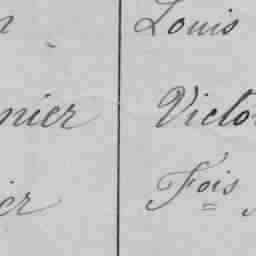 Louis
nier Victo
ier Fois